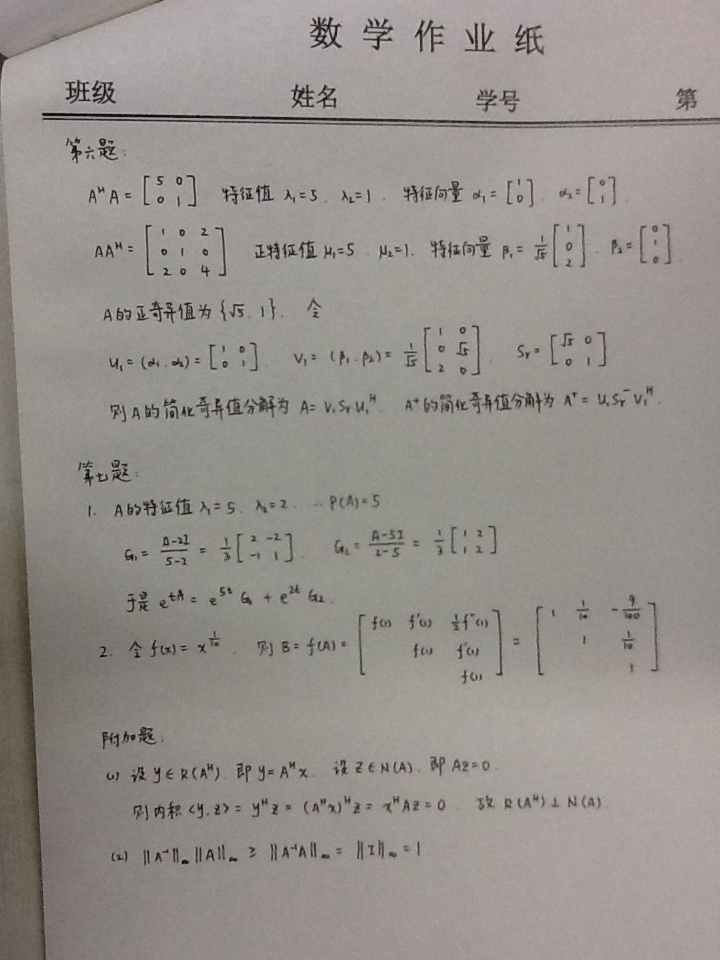 数学作业纸
班级 姓名 学号 第
第六题:
A^H A = [5 0; 0 1] 特征值 λ₁=5, λ₂=1, 特征向量 α₁=[1; 0], α₂=[0; 1].
AA^H = [1 0 2; 0 1 0; 2 0 4] 正特征值 μ₁=5, μ₂=1, 特征向量 β₁=1/√5 [1; 0; 2], β₂=[0; 1; 0].
A的正奇异值为{√5, 1}, 令
U₁=(α₁,α₂)=[1 0; 0 1], V₁=(β₁,β₂)=1/√5 [1 0; 0 √5; 2 0], Sᵣ=[√5 0; 0 1]
则A的简化奇异值分解为 A=V₁SᵣU₁^H, A⁺的简化奇异值分解为 A⁺=U₁Sᵣ⁻V₁^H.
第七题:
1. A的特征值 λ₁=5, λ₂=2, ∴ρ(A)=5
G₁=(A-2I)/(5-2)=1/3 [2 -2; -1 1], G₂=(A-5I)/(2-5)=1/3 [1 2; 1 2]
于是 e^{tA}=e^{5t}G₁+e^{2t}G₂.
2. 令 f(x)=x^{1/10}, 则 B=f(A)=[f(1) f'(1) ½f''(1); f(1) f'(1); f(1)]=[1 1/10 -9/100; 1 1/10; 1]
附加题:
(1) 设 y∈R(A^H), 即 y=A^H x, 设 z∈N(A), 即 Az=0.
则内积 <y,z>=y^H z=(A^H x)^H z=x^H Az=0, 故 R(A^H)⊥N(A).
(2) ‖A⁻¹‖∞‖A‖∞ ≥ ‖A⁻¹A‖∞ = ‖I‖∞ = 1